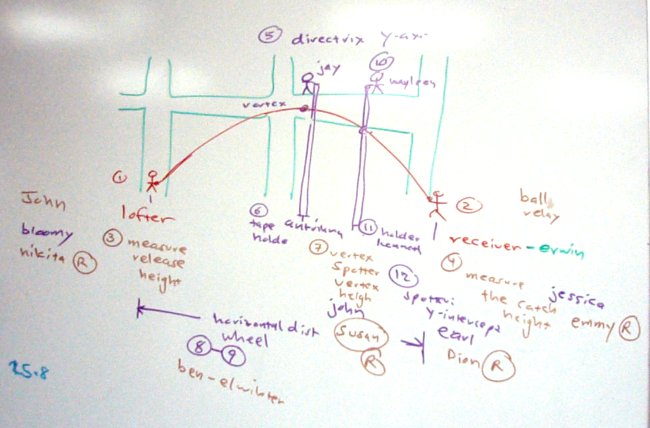 5 directrix y-axi
jay
10
wayleen
vertex
1
lofter
John
bloomy
nikita R
3 measure
release
height
6
tape
holde
7 vertex
spotter
vertex
heigh
john
Susan
R
11 holder
12
spotter:
y-intercept
earl
Dion R
2
ball
relay
receiver - erwin
4 measure
the catch
height
jessica
emmy R
horizontal dist
wheel
8 - 9
25.8